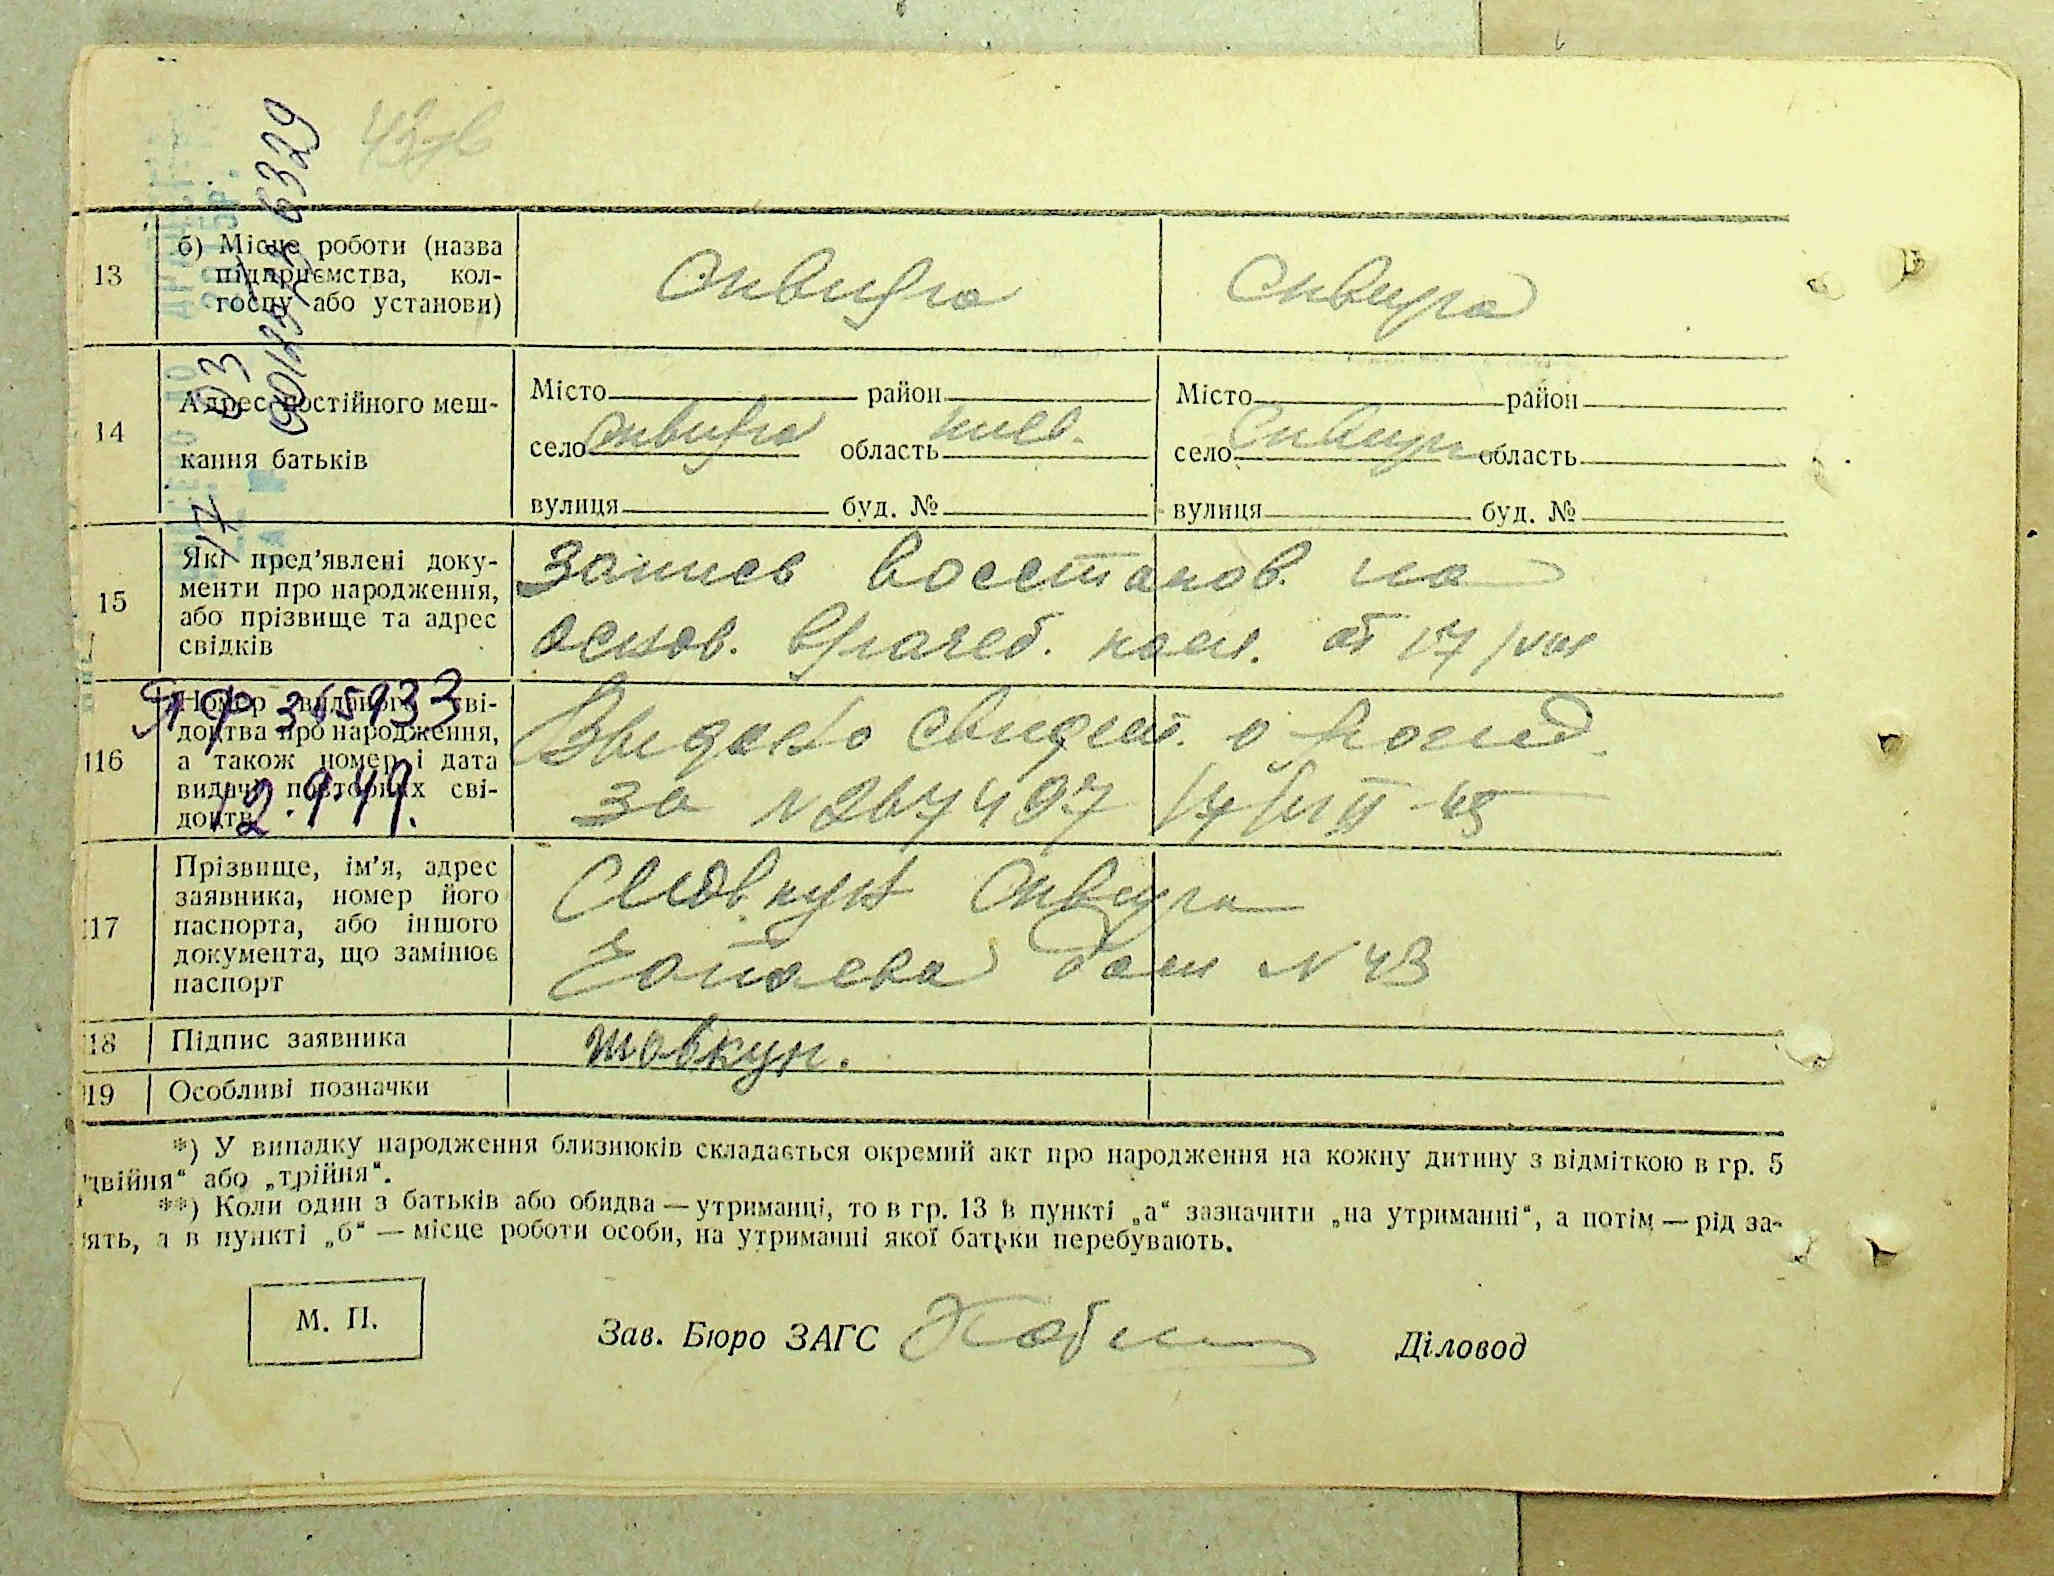 13
б) Місце роботи (назва
підприємства, кол-
госпу або установи)
Сквира
Сквира
14
Адрес постійного меш-
кання батьків
Місто район
село Сквира область Киев.
вулиця буд. №
Місто район
село Сквира область
вулиця буд. №
15
Які пред’явлені доку-
менти про народження,
або прізвище та адрес
свідків
Запись восстанов. на
основ. врачеб. ком. от 17/VIII
116
Номер виданого сві-
доцтва про народження,
а також номер і дата
видачі повторних сві-
доцтв
12.9.49.
Выдано свидет. о рожд.
за N 267497 17/VIII-45
117
Прізвище, ім’я, адрес
заявника, номер його
паспорта, або іншого
документа, що замінює
паспорт
Шовкун Сквира
Чапаева дом N 43
118
Підпис заявника
Шовкун.
119
Особливі позначки
*) У випадку народження близнюків складається окремий акт про народження на кожну дитину з відміткою в гр. 5
"двійня“ або „трійня“.
**) Коли один з батьків або обидва — утриманці, то в гр. 13 в пункті „а“ зазначити „на утриманні“, а потім — рід за-
нять, а в пункті „б“ — місце роботи особи, на утриманні якої батьки перебувають.
М. П.
Зав. Бюро ЗАГС
Діловод